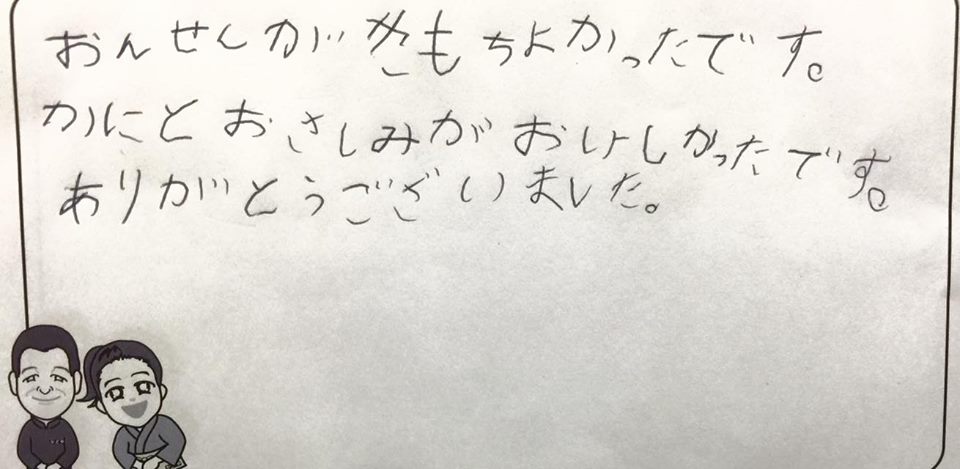 おんせんがきもちよかったです。
かにとおさしみがおいしかったです。
ありがとうございました。